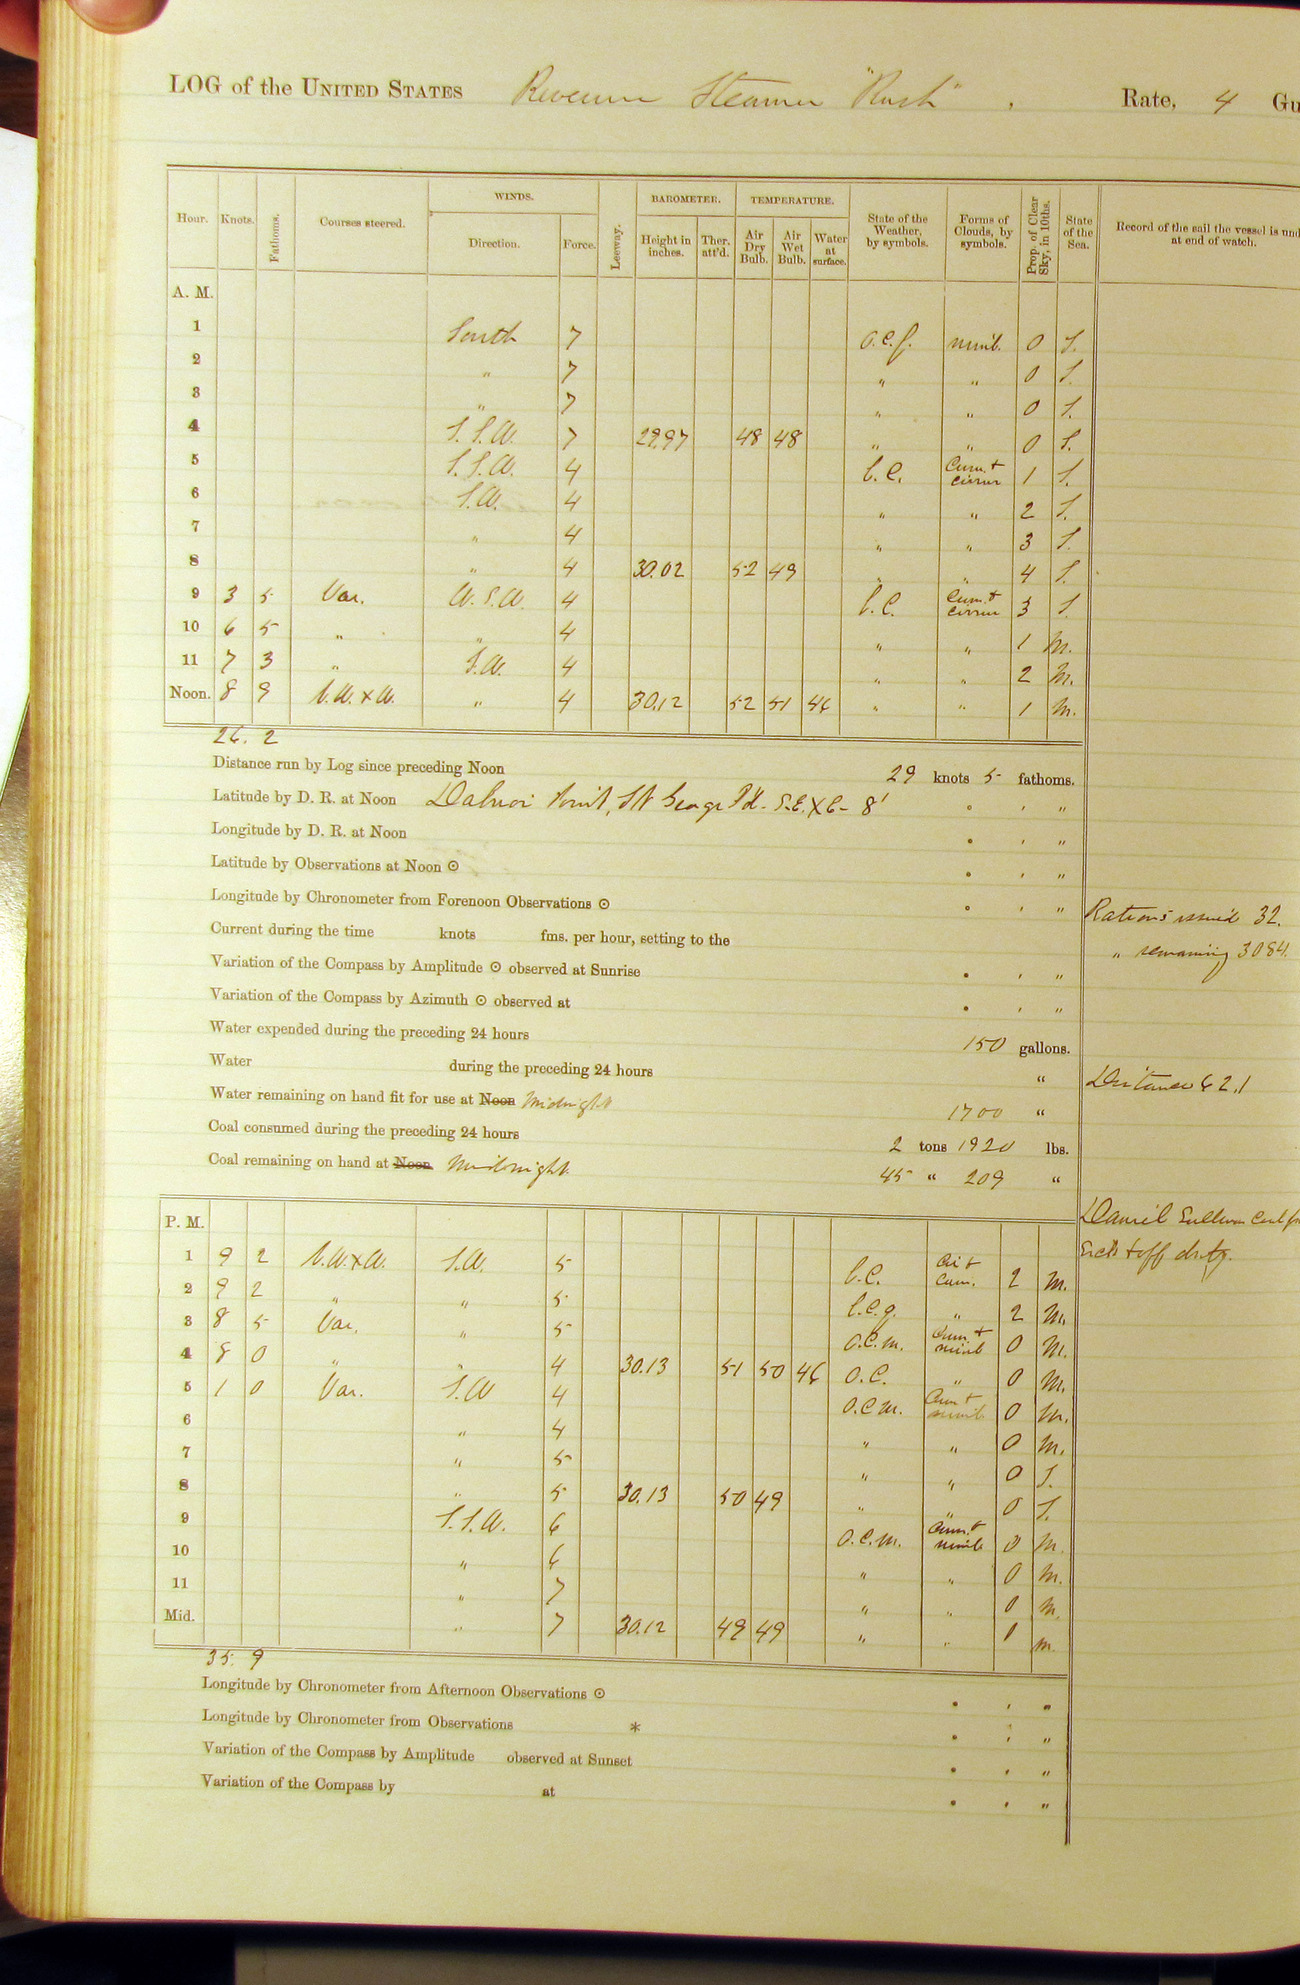 LOG of the UNITED STATES Revenue Steamer "Rush" . Rate, 4 Gu
Hour. Knots. Fathoms. Courses steered. WINDS. Direction. Force. Leeway. BAROMETER. Height in inches. Ther. att'd. TEMPERATURE. Air Dry Bulb. Air Wet Bulb. Water at surface. State of the Weather, by symbols. Forms of Clouds, by symbols. Prop. of Clear Sky, in 10ths. State of the Sea. Record of the sail the vessel is und at end of watch.
A. M.
1 South 7 O.C.f. nimb. 0 S.
2 " 7 " " 0 S.
3 " 7 " " 0 S.
4 S.S.W. 7 29.97 48 48 " " 0 S.
5 S.S.W. 4 b.c. Cum. & cirrus 1 S.
6 S.W. 4 " " 2 S.
7 " 4 " " 3 S.
8 " 4 30.02 52 49 " " 4 S.
9 3 5 Var. W.S.W. 4 b.c. Cum. & cirrus 3 S.
10 6 5 " " 4 " " 1 M.
11 7 3 " S.W. 4 " " 2 M.
Noon. 8 9 N.W. x W. " 4 30.12 52 51 46 " " 1 M.
26. 2
Distance run by Log since preceding Noon 29 knots 5 fathoms.
Latitude by D. R. at Noon Dalnoi Point, St George I'd - S.E. x E - 8' ° ' "
Longitude by D. R. at Noon ° ' "
Latitude by Observations at Noon ⊙ ° ' "
Longitude by Chronometer from Forenoon Observations ⊙ ° ' "
Rations issued 32.
Current during the time knots fms. per hour, setting to the
" remaining 3084.
Variation of the Compass by Amplitude ⊙ observed at Sunrise ° ' "
Variation of the Compass by Azimuth ⊙ observed at ° ' "
Water expended during the preceding 24 hours 150 gallons.
Water during the preceding 24 hours "
Distance 62.1
Water remaining on hand fit for use at Noon Midnight 1700 "
Coal consumed during the preceding 24 hours 2 tons 1920 lbs.
Coal remaining on hand at Noon Midnight. 45 " 209 "
Daniel Sullivan
Sick & off duty.
P. M.
1 9 2 N.W. x W. S.W. 5 b.c. Cir & Cum. 2 M.
2 9 2 " " 5 b.c.q. " 2 M.
3 8 5 Var. " 5 O.C.m. Cum. & nimb 0 M.
4 8 0 " " 4 30.13 51 50 46 O.C. " 0 M.
5 1 0 Var. S.W 4 O.C.m. Cum & nimb 0 M.
6 " 4 " " 0 M.
7 " 5 " " 0 S.
8 " 5 30.13 50 49 " " 0 S.
9 S.S.W. 6 O.C.m. Cum. & nimb 0 M.
10 " 6 " " 0 M.
11 " 7 " " 0 M.
Mid. " 7 30.12 49 49 " " 1 M.
35. 9
Longitude by Chronometer from Afternoon Observations ⊙ ° ' "
Longitude by Chronometer from Observations * ° ' "
Variation of the Compass by Amplitude observed at Sunset ° ' "
Variation of the Compass by at ° ' "